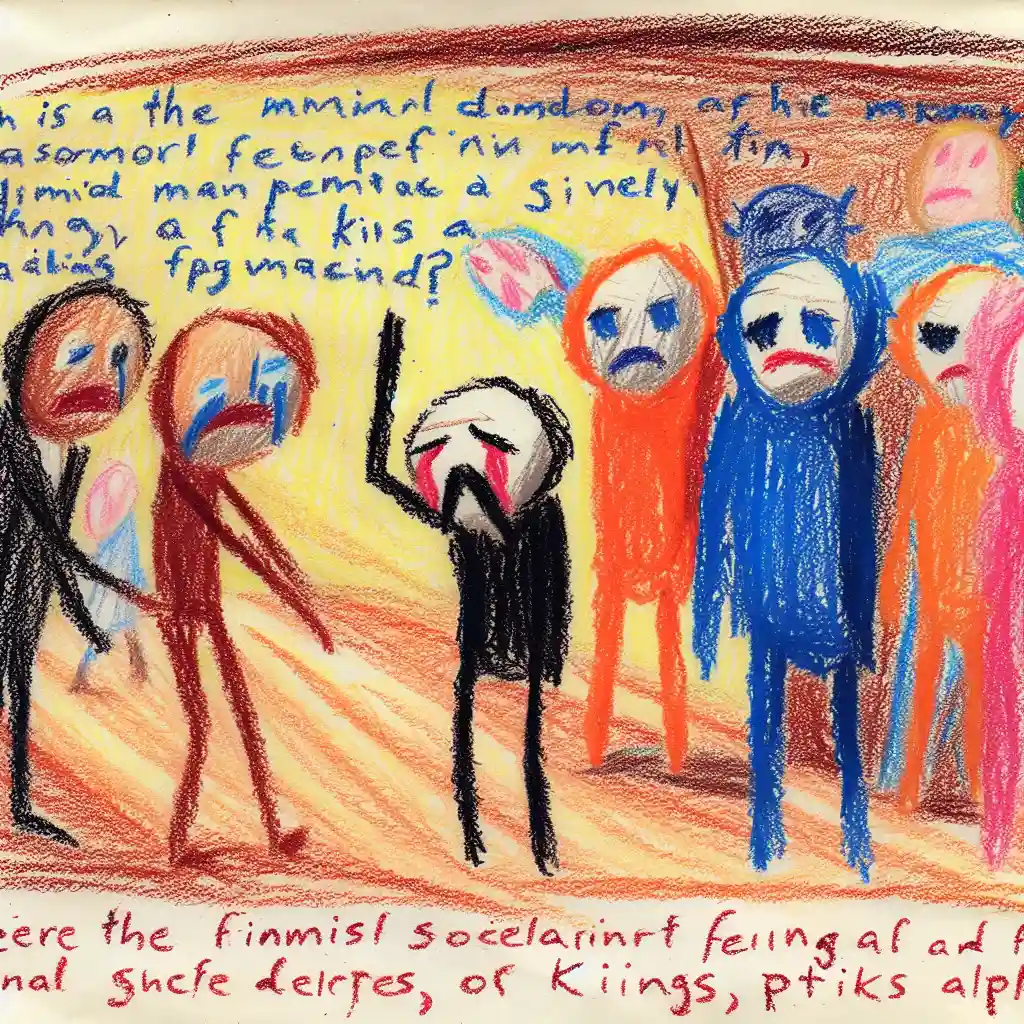 h is a the mminirl domdom, af hie mnomay
asormorl feenpef 'nin mf nl tin,
limid man pemtac a sinely,
hngr, a f ha kiis a
adlins fpgvnacind?
eere the finmisl socelarinrt ferung af ad f
nal shcfe delrfes, or Kiings, ptiks alph